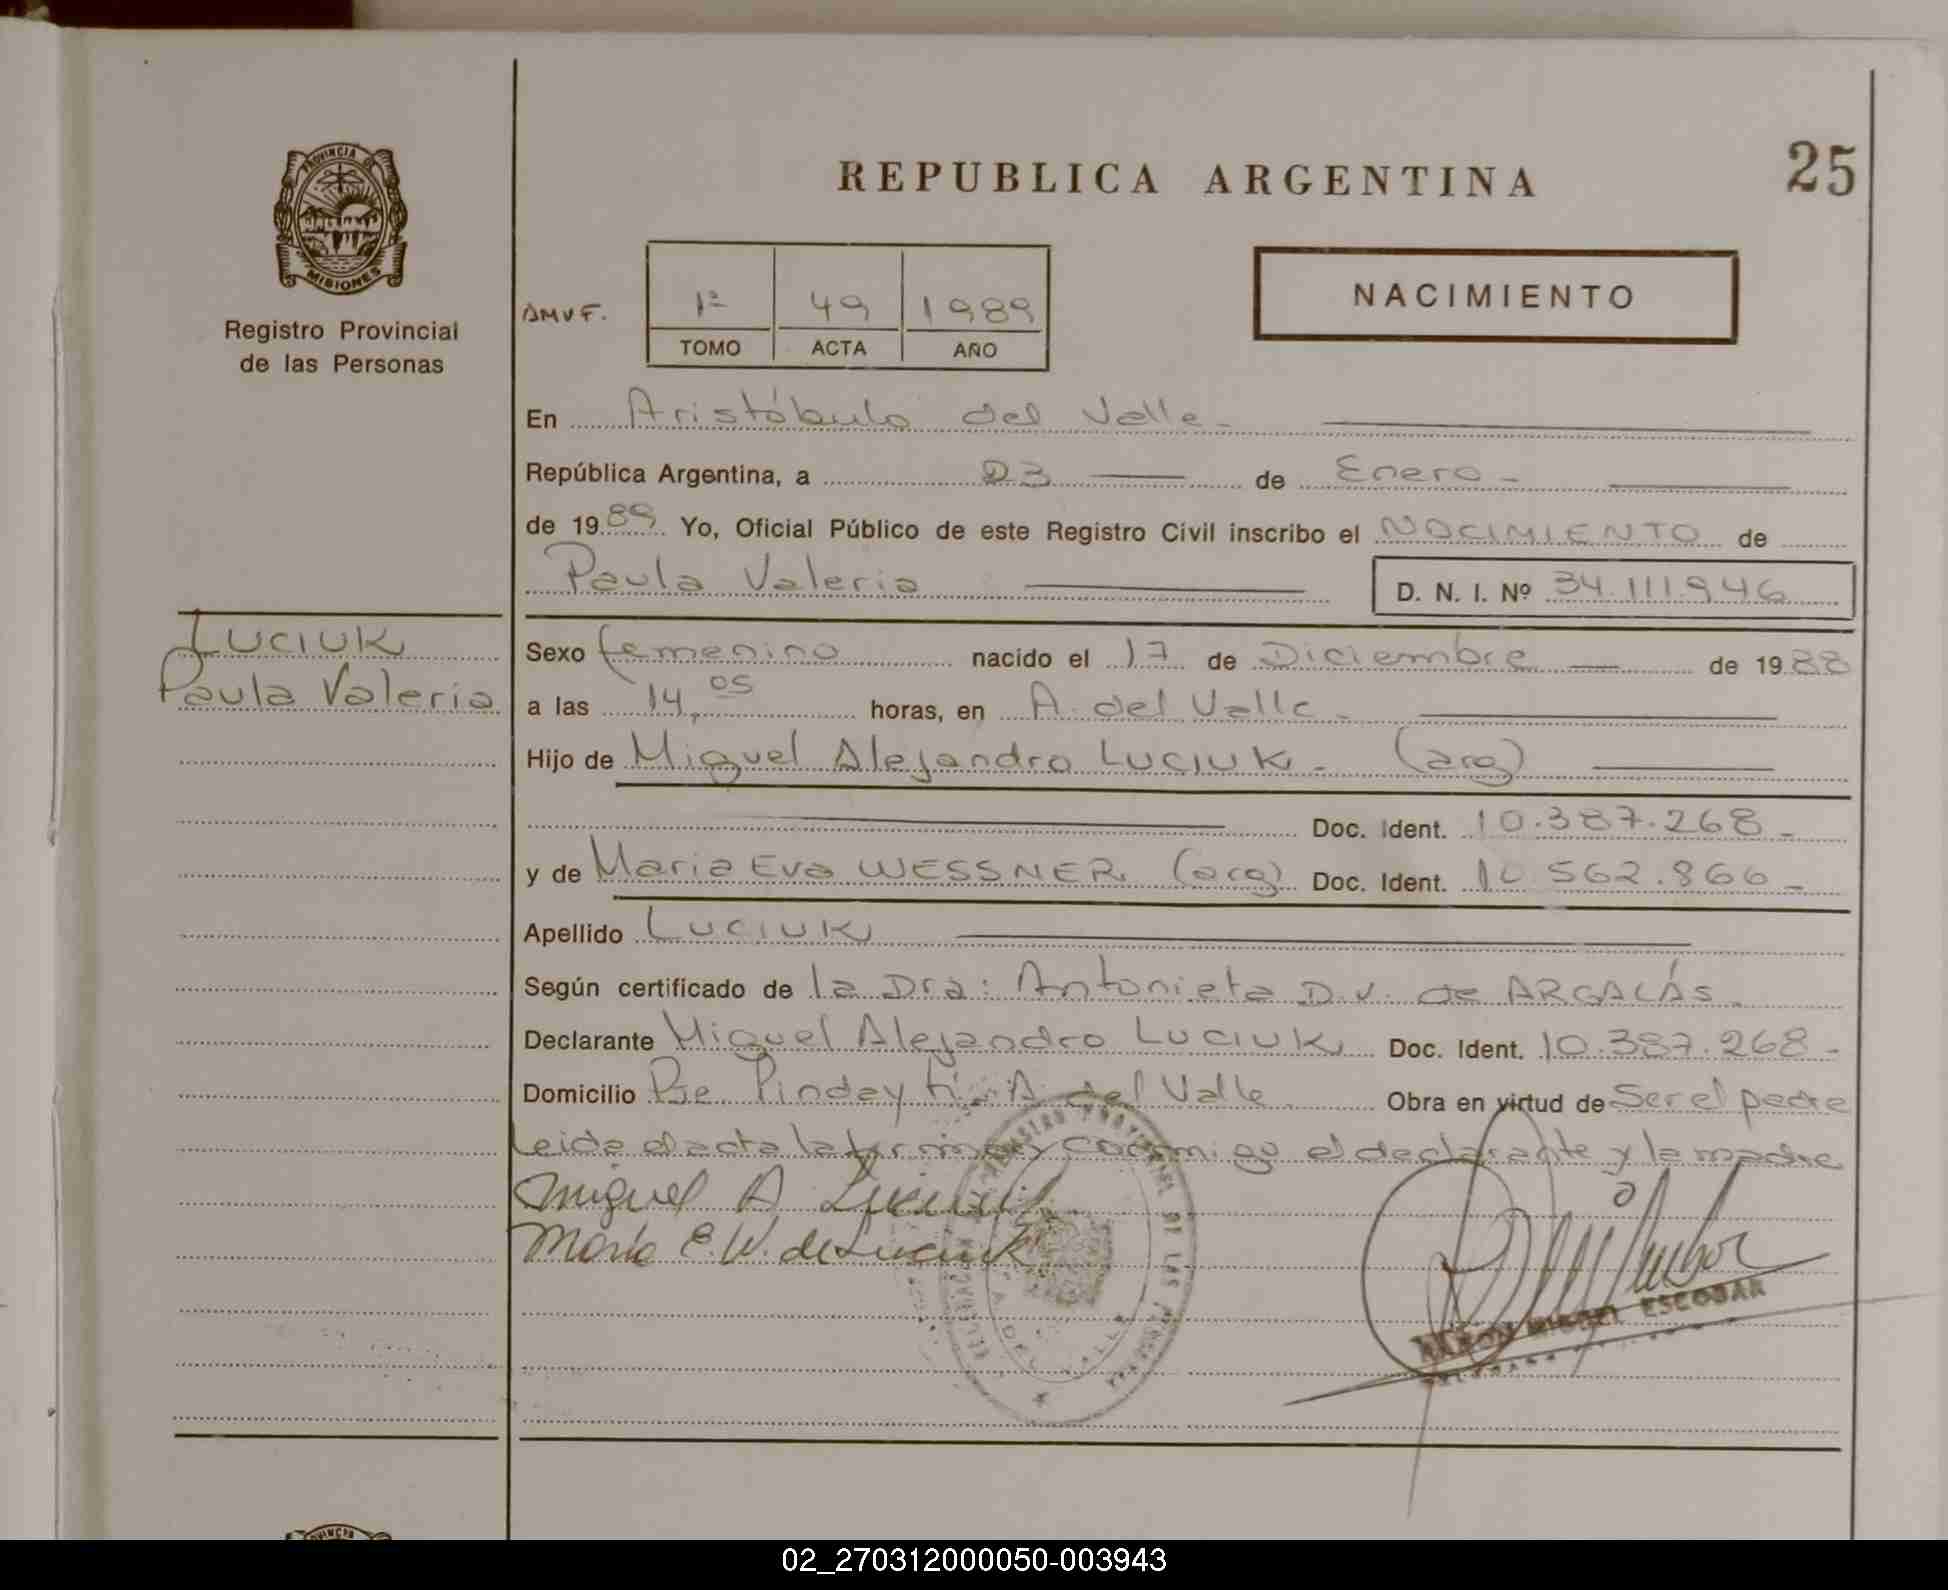 PROVINCIA DE
MISIONES
Registro Provincial
de las Personas
REPUBLICA ARGENTINA
25
1ª 49 1989
TOMO ACTA AÑO
NACIMIENTO
En Aristóbulo del Valle-
República Argentina, a 03 de Enero-
de 1989 Yo, Oficial Público de este Registro Civil inscribo el NACIMIENTO de
Paula Valeria D. N. I. Nº 34.111.946
LUCIUK
Paula Valeria
Sexo femenino nacido el 17 de Diciembre de 1988
a las 14,05 horas, en A. del Valle-
Hijo de Miguel Alejandro LUCIUK- (arg)
Doc. Ident. 10.387.268-
y de Maria Eva WESSNER (arg) Doc. Ident. 10.562.866-
Apellido LUCIUK
Según certificado de la Dra: Antonieta D.V. de ARGALÁS.
Declarante Miguel Alejandro LUCIUK Doc. Ident. 10.387.268-
Domicilio Pje. Pindaytí-A. del Valle Obra en virtud de Ser el padre
Leida el acta la firman conmigo el declarante y la madre
Miguel A. Luciuk
María E. W. de Luciuk
REGISTRO PROVINCIAL DE LAS PERSONAS
A. DEL VALLE
RAMON MIGUEL ESCOBAR
02_270312000050-003943